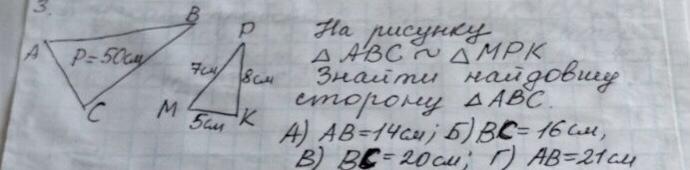 3.
A
B
P=50см
C
P
7см
8см
M
K
5см
На рисунку
△ABC ~ △MPK
Знайти найдовшу
сторону △ABC.
А) AB=14см; Б) BC=16см,
В) BC=20см; Г) AB=21см